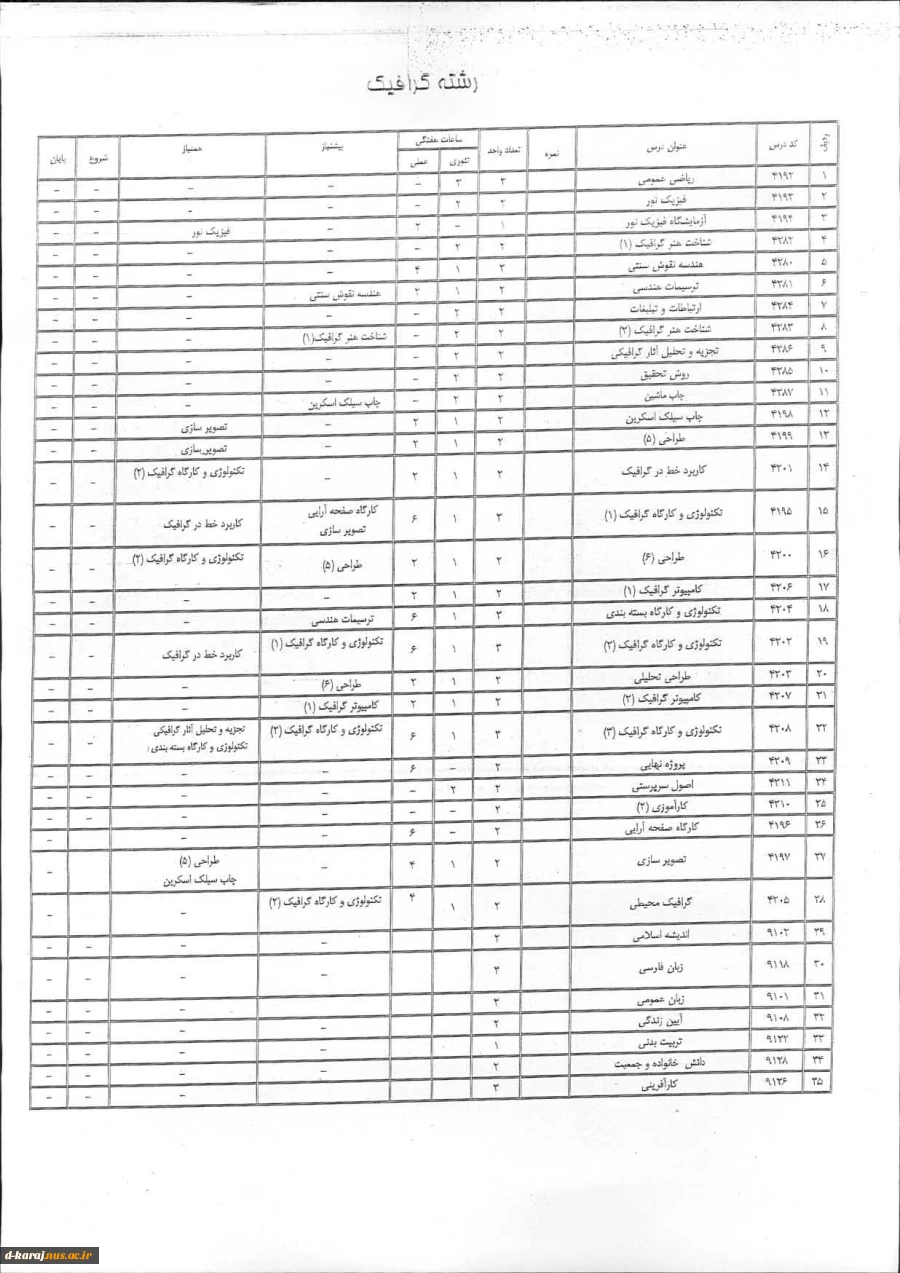 رشته گرافیک
ردیف کد درس عنوان درس نمره تعداد واحد ساعات هفتگی پیشنیاز همنیاز شروع پایان
تئوری عملی
۱ ۴۱۹۲ ریاضی عمومی ۳ ۳ – – – – –
۲ ۴۱۹۳ فیزیک نور ۲ ۲ – – – – –
۳ ۴۱۹۴ آزمایشگاه فیزیک نور ۱ – ۲ – فیزیک نور – –
۴ ۴۲۸۲ شناخت هنر گرافیک (۱) ۲ ۲ – – – – –
۵ ۴۲۸۰ هندسه نقوش سنتی ۳ ۱ ۴ – – – –
۶ ۴۲۸۱ ترسیمات هندسی ۲ ۱ ۲ هندسه نقوش سنتی – – –
۷ ۴۲۸۴ ارتباطات و تبلیغات ۲ ۲ – – – – –
۸ ۴۲۸۳ شناخت هنر گرافیک (۲) ۲ ۲ – شناخت هنر گرافیک(۱) – – –
۹ ۴۲۸۶ تجزیه و تحلیل آثار گرافیکی ۲ ۲ – – – – –
۱۰ ۴۲۸۵ روش تحقیق ۲ ۲ – – – – –
۱۱ ۴۲۸۷ چاپ ماشین ۲ ۲ – چاپ سیلک اسکرین – – –
۱۲ ۴۱۹۸ چاپ سیلک اسکرین ۲ ۱ ۲ – تصویر سازی – –
۱۳ ۴۱۹۹ طراحی (۵) ۲ ۱ ۲ – تصویر سازی – –
۱۴ ۴۲۰۱ کاربرد خط در گرافیک ۲ ۱ ۲ – تکنولوژی و کارگاه گرافیک (۲) – –
۱۵ ۴۱۹۵ تکنولوژی و کارگاه گرافیک (۱) ۳ ۱ ۶ کارگاه صفحه آرایی کاربرد خط در گرافیک – –
تصویر سازی
۱۶ ۴۲۰۰ طراحی (۶) ۲ ۱ ۲ طراحی (۵) تکنولوژی و کارگاه گرافیک (۲) – –
۱۷ ۴۲۰۶ کامپیوتر گرافیک (۱) ۲ ۱ ۲ – – – –
۱۸ ۴۲۰۴ تکنولوژی و کارگاه بسته بندی ۳ ۱ ۶ ترسیمات هندسی – – –
۱۹ ۴۲۰۲ تکنولوژی و کارگاه گرافیک (۲) ۳ ۱ ۶ تکنولوژی و کارگاه گرافیک (۱) کاربرد خط در گرافیک – –
۲۰ ۴۲۰۳ طراحی تحلیلی ۲ ۱ ۲ طراحی (۶) – – –
۲۱ ۴۲۰۷ کامپیوتر گرافیک (۲) ۲ ۱ ۲ کامپیوتر گرافیک (۱) – – –
۲۲ ۴۲۰۸ تکنولوژی و کارگاه گرافیک (۳) ۳ ۱ ۶ تکنولوژی و کارگاه گرافیک (۲) تجزیه و تحلیل آثار گرافیکی – –
تکنولوژی و کارگاه بسته بندی
۲۳ ۴۲۰۹ پروژه نهایی ۲ – ۶ – – – –
۲۴ ۴۲۱۱ اصول سرپرستی ۲ ۲ – – – – –
۲۵ ۴۲۱۰ کارآموزی (۲) ۲ – – – – – –
۲۶ ۴۱۹۶ کارگاه صفحه آرایی ۲ – ۶ – – –
۲۷ ۴۱۹۷ تصویر سازی ۲ ۱ ۴ – طراحی (۵) –
چاپ سیلک اسکرین
۲۸ ۴۲۰۵ گرافیک محیطی ۲ ۱ ۴ تکنولوژی و کارگاه گرافیک (۲) – –
۲۹ ۹۱۰۲ اندیشه اسلامی ۲ – – – –
۳۰ ۹۱۱۸ زبان فارسی ۳ – – – –
۳۱ ۹۱۰۱ زبان عمومی ۳ – – –
۳۲ ۹۱۰۸ آیین زندگی ۲ – – – –
۳۳ ۹۱۲۲ تربیت بدنی ۱ – – – –
۳۴ ۹۱۲۸ دانش خانواده و جمعیت ۲ – – – –
۳۵ ۹۱۲۶ کارآفرینی ۳ – – –
d-karaj.nus.ac.ir